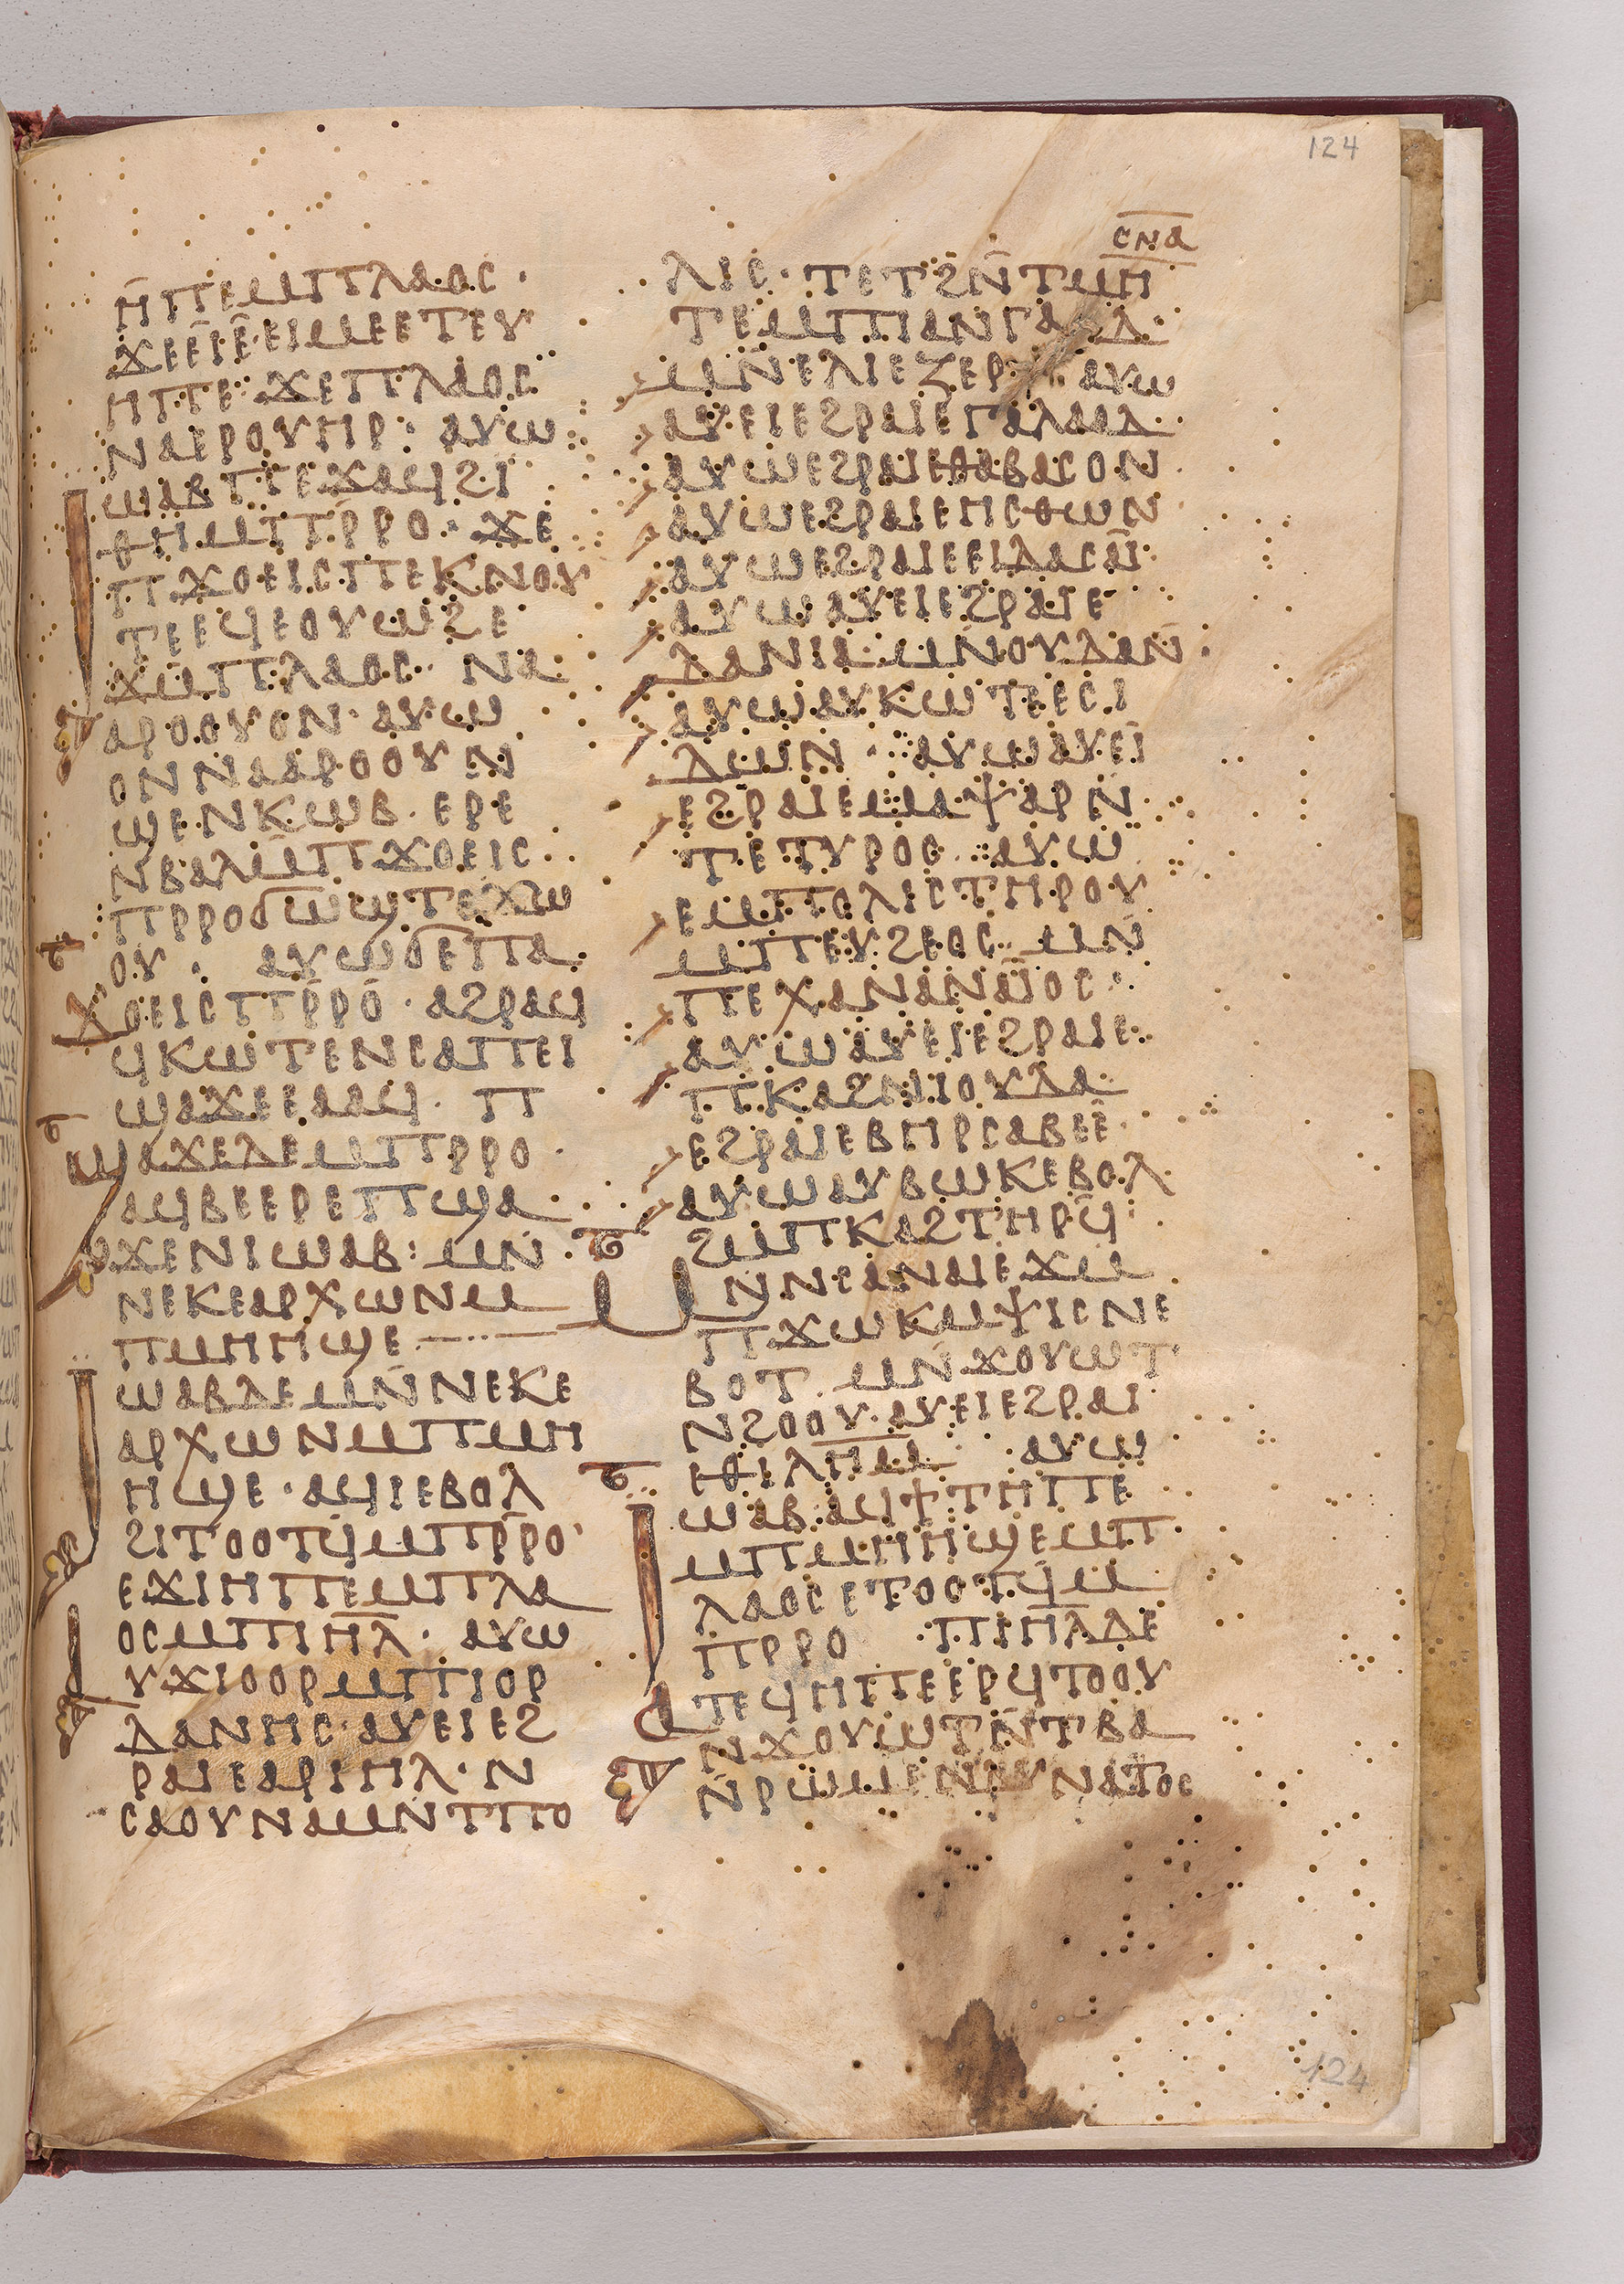 124
ⲥⲛⲁ
ⲏⲡⲉⲙⲡⲗⲁⲟⲥ·
ϫⲉⲉⲓⲉ̂ⲉⲓⲙⲉⲉⲧⲉⲩ
ⲏⲡⲉ ϫⲉⲡⲗⲁⲟⲥ
ⲛⲁⲉⲣⲟⲩⲏⲣ· ⲁⲩⲱ
ⲓⲱⲁⲃⲡⲉϫⲁϥϩⲓ
ⲑⲏⲙⲡⲣⲣⲟ· ϫⲉ
ⲡϫⲟⲉⲓⲥⲡⲉⲕⲛⲟⲩ
ⲧⲉⲉϥⲉⲟⲩⲱϩⲉ
ϫⲙⲡⲗⲁⲟⲥ· ⲛⲁ
ⲁⲣⲟⲟⲩⲟⲛ· ⲁⲩⲱ
ⲟⲛⲛⲁⲁⲣⲟⲟⲩⲛ
ϣⲉⲛⲕⲱⲃ· ⲉⲣⲉ
ⲛⲃⲁⲗⲙ̄ⲡϫⲟⲉⲓⲥ
ⲡⲣⲣⲟϭⲱϣⲧⲉϫⲱ
ⲟⲩ· ⲁⲩⲱϭⲉⲡⲁ
ϫⲟⲉⲓⲥⲡⲣ̄ⲣⲟ· ⲁϩⲣⲁϥ
ϥⲕⲱⲧⲉⲛⲥⲁⲡⲉⲓ
ϣⲁϫⲉⲉⲁⲁϥ· ⲡ
ϣⲁϫⲉⲇⲉⲙⲡⲣⲣⲟ
ⲁϥⲃⲉⲉⲣⲉⲡϣⲁ
ϫⲉⲛⲓⲱⲁⲃ: ⲙⲛ
ⲛⲉⲕⲉⲁⲣⲭⲱⲛⲙ
ⲡⲙⲏⲏϣⲉ
ⲓⲱⲁⲃⲇⲉⲙⲛ̄ⲛⲉⲕⲉ
ⲁⲣⲭⲱⲛⲙⲡⲙⲏ
ⲏϣⲉ· ⲁϥⲓⲉⲃⲟⲗ
ϩⲓⲧⲟⲟⲧϥⲙⲡⲣ̄ⲣⲟ·
ⲉϫⲓⲏⲡⲉⲙⲡⲗⲁ
ⲟⲥⲙⲡⲓⲏ̄ⲗ̄· ⲁⲩⲱ
ⲁⲩϫⲓⲟⲟⲣⲙⲡⲓⲟⲣ
ⲇⲁⲛⲏⲥ· ⲁⲩⲉⲓⲉϩ
ⲣⲁⲓⲉⲁⲣⲓⲏⲗ· ⲛ
ⲥⲁⲟⲩⲛⲁⲙⲛ̄ⲧⲡⲟ
ⲗⲓⲥ· ⲧⲉⲧϩⲛ̄ⲧⲙⲏ
ⲧⲉⲙⲡⲓⲁⲛⲅⲁⲇ·
ⲙⲛ̄ⲉⲗⲓⲉⲍⲉⲣ ⲁⲩⲱ
ⲁⲩⲉⲓⲉϩⲣⲁⲓⲉⲅⲁⲗⲁⲁⲇ
ⲁⲩⲱⲉϩⲣⲁⲓⲉⲑⲁⲃⲁⲥⲟⲛ
ⲁⲩⲱⲉϩⲣⲁⲓⲉⲏⲥⲑⲱⲛ
ⲁⲩⲱⲉϩⲣⲁⲓⲉⲉⲓⲇⲁⲥⲁⲓ̈·
ⲁⲩⲱⲁⲩⲉⲓⲉϩⲣⲁⲓⲉ
ⲇⲁⲛⲓⲁ· ⲙⲛ̄ⲟⲩⲇⲁⲛ·
ⲁⲩⲱⲁⲩⲕⲱⲧⲉⲉⲥⲓ
ⲇⲱⲛ· ⲁⲩⲱⲁⲩⲉⲓ
ⲉϩⲣⲁⲓⲉⲙⲁⲯⲁⲣⲛ
ⲧⲉⲧⲩⲣⲟⲥ ⲁⲩⲱ
ⲉⲙⲡⲟⲗⲓⲥⲧⲏⲣⲟⲩ
ⲙⲡⲉⲩϩⲉⲟⲥ ⲙⲛ̄
ⲡⲉⲭⲁⲛⲁⲛⲁⲓ̈ⲟⲥ·
ⲁⲩⲱⲁⲩⲉⲓⲉϩⲣⲁⲓⲉ
ⲡⲕⲁϩⲛⲓⲟⲩⲇⲁ
ⲉϩⲣⲁⲓⲉⲃⲏⲣⲥⲁⲃⲉⲉ
ⲁⲩⲱⲁⲩⲃⲱⲕⲉⲃⲟⲗ
ϩⲙⲡⲕⲁϩⲧⲏⲣϥ
ⲙⲛ̄ⲛⲥⲁⲛⲁⲓⲉϫⲙ
ⲡϫⲱⲕⲙⲯⲓⲥⲛⲉ
ⲃⲟⲧ ⲙⲛ̄ϫⲟⲩⲱⲧ
ⲛϩⲟⲟⲩ· ⲁⲩⲉⲓⲉϩⲣⲁⲓ
ⲉⲑⲓⲗⲏⲙ ⲁⲩⲱ
ⲓⲱⲁⲃⲁϥϯⲧⲏⲡⲉ
ⲙⲡⲙⲏⲏϣⲉⲙⲡ
ⲗⲁⲟⲥⲉⲧⲟⲟⲧϥⲙ
ⲡⲣⲣⲟ ⲡⲓⲏ̄ⲗ̄ⲇⲉ
ⲁⲧⲉϥⲏⲡⲉⲉⲣϥⲧⲟⲟⲩ
ⲛϫⲟⲩⲱⲧⲛ̄ⲧⲃⲁ
ⲛ̄ⲣⲱⲙⲉⲛⲇⲩⲛⲁⲧⲟⲥ
124